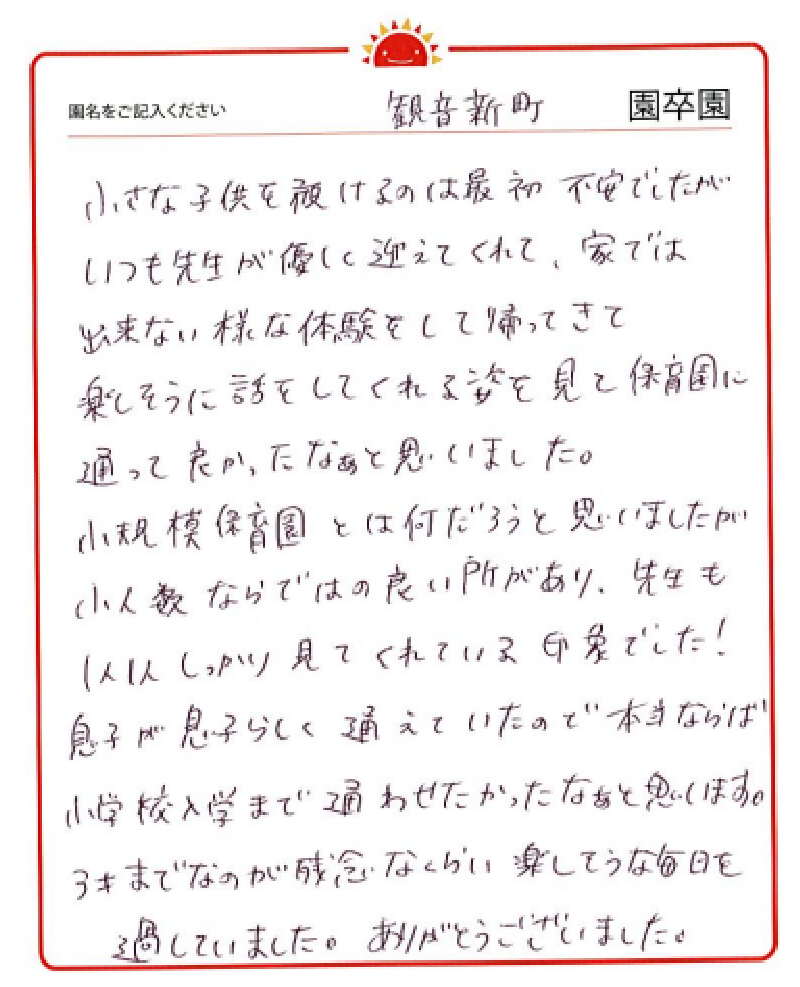 園名をご記入ください 観音新町 園卒園
小さな子供を預けるのは最初 不安でしたが
いつも先生が優しく迎えてくれて、家では
出来ない様な体験をして帰ってきて
楽しそうに話をしてくれる姿を見て保育園に
通って良かったなぁと思いました。
小規模保育園とは何だろうと思いましたが
小人数ならではの良い所があり、先生も
1人1人しっかり見てくれている印象でした!
息子が息子らしく通えていたので本当ならば
小学校入学まで通わせたかったなぁと思います。
3才までなのが残念なくらい楽しそうな毎日を
過していました。ありがとうございました。